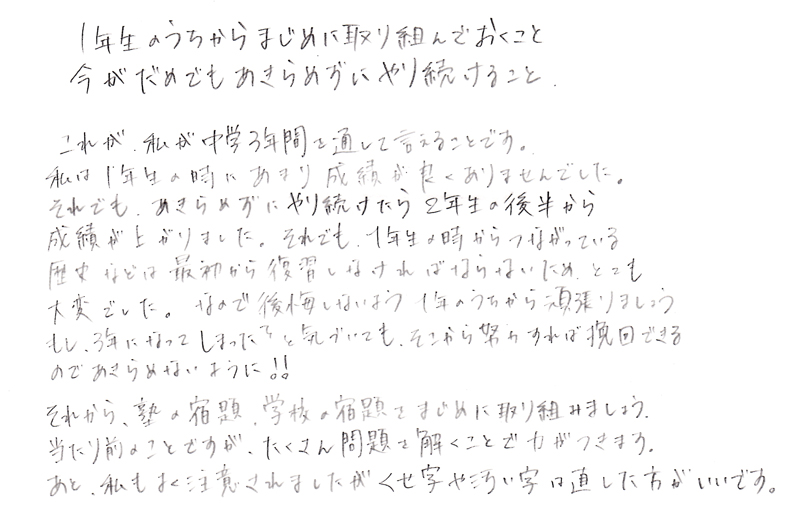 1年生のうちからまじめに取り組んでおくこと
今がだめでもあきらめずにやり続けること.
これが、私が中学3年間を通して言えることです。
私は1年生の時にあまり成績が良くありませんでした。
それでも、あきらめずにやり続けたら2年生の後半から
成績が上がりました。それでも、1年生の時からつながっている
歴史などは最初から復習しなければならないため、とても
大変でした。なので後悔しないよう1年のうちから頑張りましょう
もし、3年になってしまった〃と気づいても、そこから努力すれば挽回できる
のであきらめないように!!
それから、塾の宿題、学校の宿題をまじめに取り組みましょう.
当たり前のことですが、たくさん問題を解くことで力がつきます。
あと、私もよく注意されましたがくせ字や汚い字は直した方がいいです。